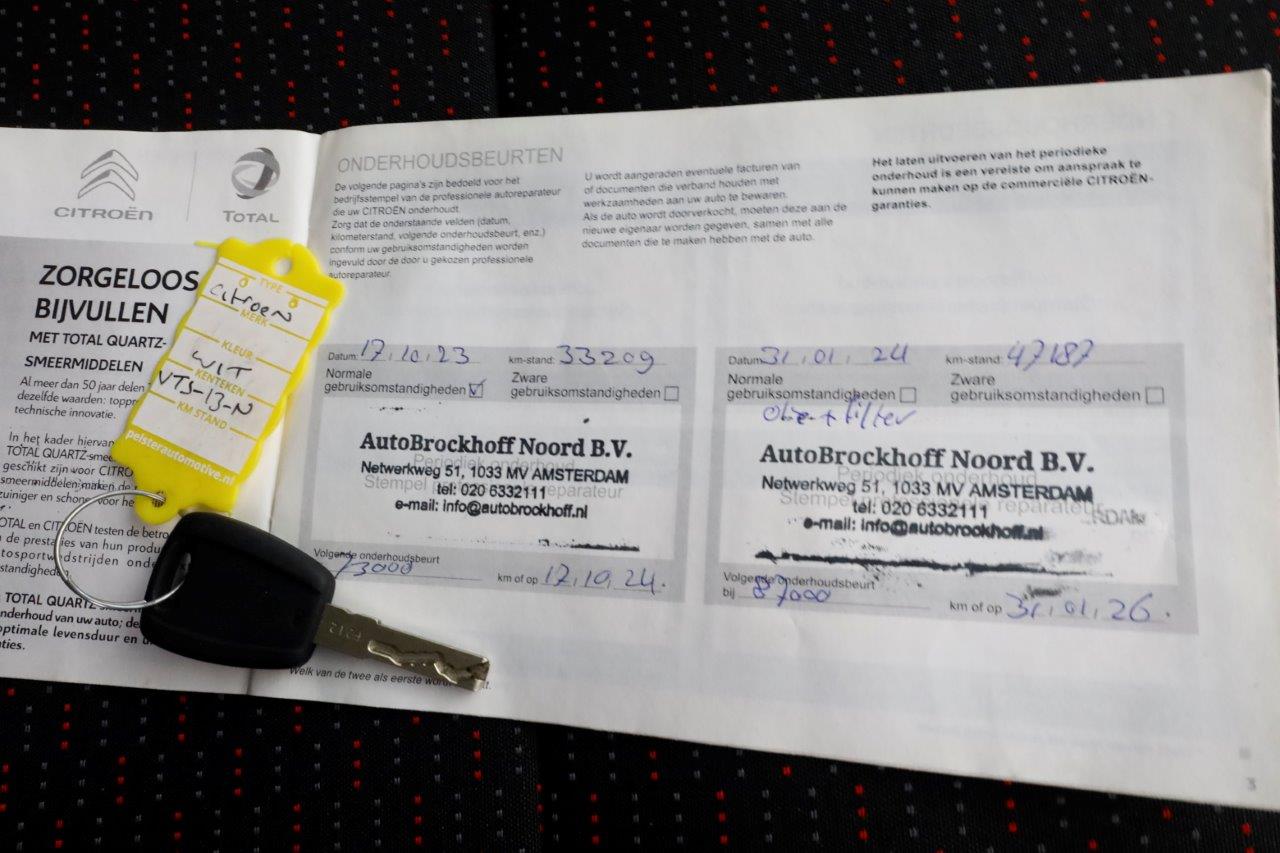 CITROËN
TOTAL
ZORGELOOS
BIJVULLEN
MET TOTAL QUARTZ-
SMEERMIDDELEN
Al meer dan 50 jaar delen
dezelfde waarden:
technische innovatie.
In het kader hiervan
TOTAL QUARTZ-
geschikt zijn voor CITRO
smeermiddelen maken de
zuiniger en schoner voor he
TOTAL en CITROËN testen de
de prestaties van hun produ
standigheden
TOTAL QUARTZ
onderhoud van uw auto; de
optimale levensduur en
TYPE
Citroen
MERK
KLEUR
WIT
KENTEKEN
VTS-13-N
KM STAND
pelsterautomotive.nl
F212
ONDERHOUDSBEURTEN
De volgende pagina's zijn bedoeld voor het
bedrijfsstempel van de professionele autoreparateur
die uw CITROËN onderhoudt.
Zorg dat de onderstaande velden (datum,
kilometerstand, volgende onderhoudsbeurt, enz.)
conform uw gebruiksomstandigheden worden
ingevuld door de door u gekozen professionele
autoreparateur.
U wordt aangeraden eventuele facturen van
of documenten die verband houden met
werkzaamheden aan uw auto te bewaren.
Als de auto wordt doorverkocht, moeten deze aan de
nieuwe eigenaar worden gegeven, samen met alle
documenten die te maken hebben met de auto.
Het laten uitvoeren van het periodieke
onderhoud is een vereiste om aanspraak te
kunnen maken op de commerciële CITROËN-
garanties.
Datum: 17.10.23 km-stand: 33209
Normale
gebruiksomstandigheden
Zware
gebruiksomstandigheden
AutoBrockhoff Noord B.V.
Periodiek onderhoud
Netwerkweg 51, 1033 MV AMSTERDAM
tel: 020 6332111
e-mail: info@autobrockhoff.nl
Volgende onderhoudsbeurt
73000 km of op 17.10.24.
Datum: 31.01.24 km-stand: 47187
Normale
gebruiksomstandigheden
Zware
gebruiksomstandigheden
Olie + filter
AutoBrockhoff Noord B.V.
Periodiek onderhoud
Netwerkweg 51, 1033 MV AMSTERDAM
tel: 020 6332111
e-mail: info@autobrockhoff.nl
Volgende onderhoudsbeurt
bij 87000 km of op 31.01.26.
Welk van de twee als eerste
3